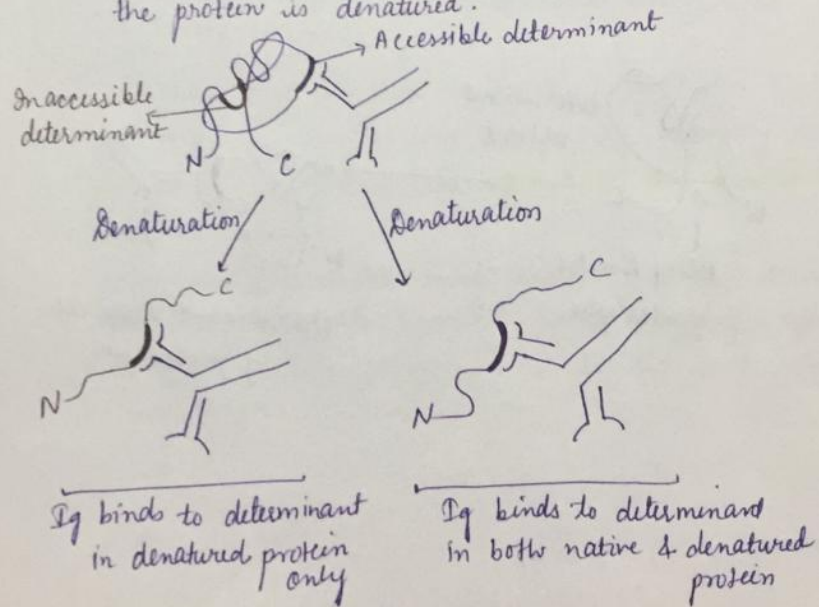 the protein is denatured.
Accessible determinant
Inaccessible
determinant
N
C
Denaturation
Denaturation
C
N
C
N
Ig binds to determinant
in denatured protein
only
Ig binds to determinant
in both native & denatured
protein